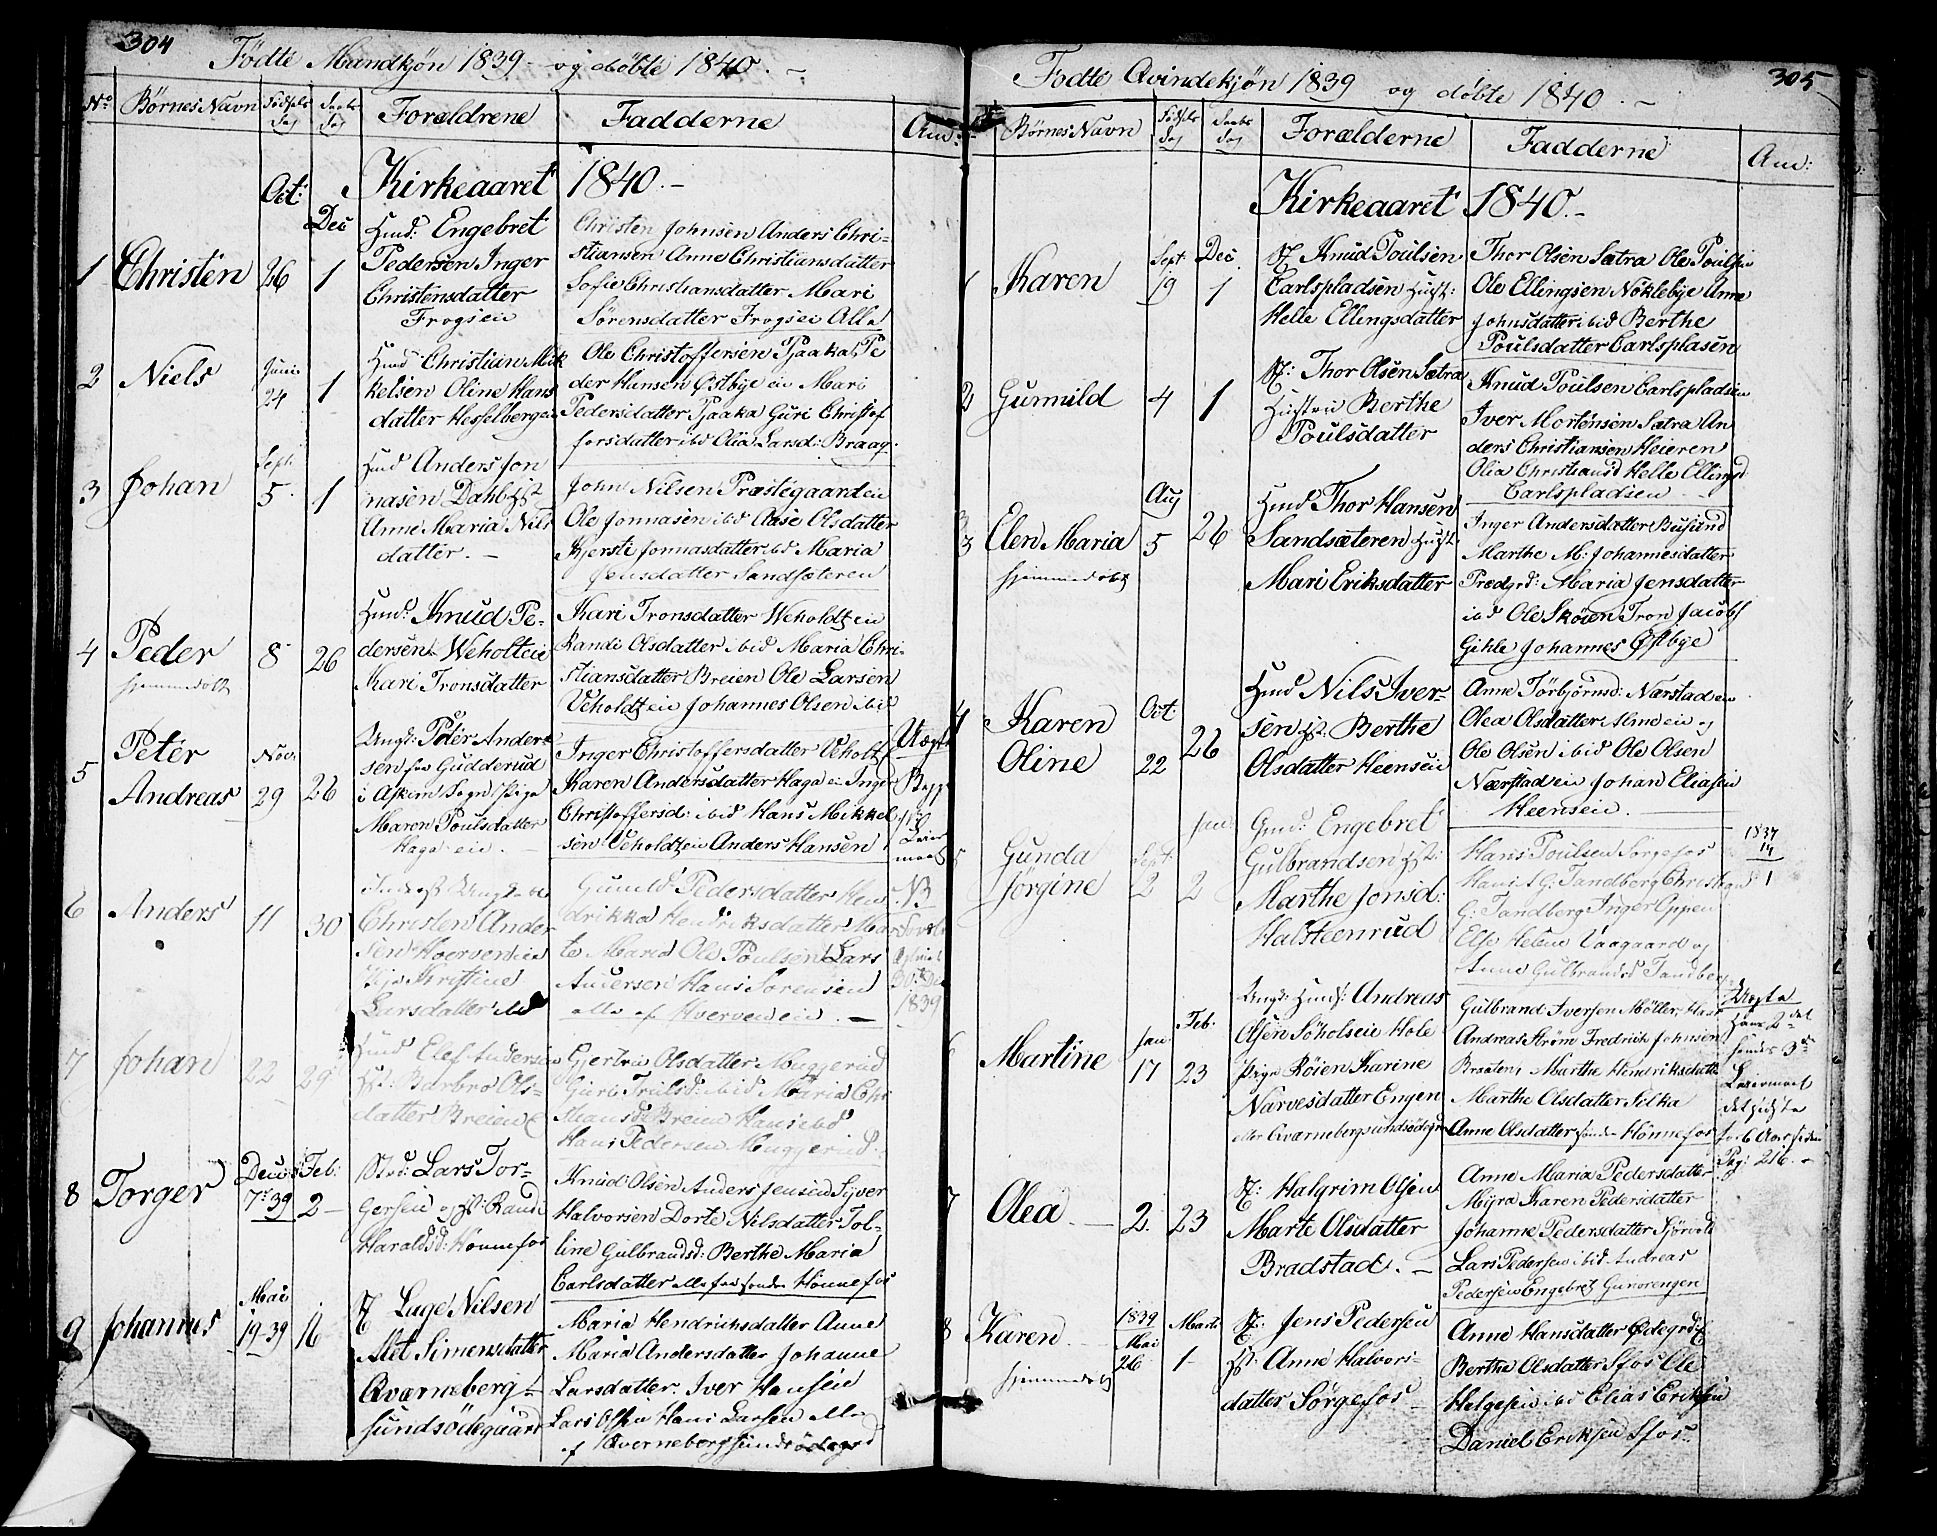 304
Födte Mandkjön 1839 og döbte 1840. –
No Börnes Navn Födsels Dag Daabs Dag Forældrene Fadderne Anm:
Kirkeaaret 1840. –
Oct: Dec
1 Christen 26 1
Huusmd: Engebret
Pedersen Inger
Christensdatter
Frogeie
Christen Johnsen Anders Chri-
stiansen Anne Christiansdatter
Sofie Christiansdatter Mari
Sörensdatter Frogeie Alle
2 Niels Junii 24 1
Christian Mik
kelsen Oline Hans
datter Hesselberg
Ole Christoffersen Tjaaka Pe
der Hansen Østbye Mari
Pedersdatter Tjaaka Guri Christof
fersdatter ibd Olia Larsd: Braag
3 Johan Sept. 5 1
Anders Jon
nasen Dahl
Anne Maria Nils
datter. –
John Nilsen Præstegaardeie
Ole Jonnasen ibd Aase Olsdatter
Kjersti Jonnasdatter ibd Maria
Jensdatter Sandsæteren
4 Peder 8 26
hjemmedöbt
Knud Pe-
dersen Weholteie
Kari Tronsdatter
Kari Tronsdatter Weholteie
Randi Olsdatter ibid Maria Chri-
stiansdatter Breien Ole Larsen
Veholdteie Johannes Olsen ibd
5 Peter
Andreas
Novr 29 26
Ungk: Peter Ander
sen fra Gudderud
i Askim Sogn Pige
Maren Poulsdatter
Haga eie. –
Inger Christoffersdatter Veholt
Karen Andersdatter Haga Inger
Christoffersd: ibid Hans Mikkel
sen Veholdteie Anders Hansen
Uægte
6 Anders 11 30
Christen Ander
sen Hoerveneie
Pige Kristine
Larsdatter ibd
Gunild Pedersdatter Hen
drikka Hendriksdatter Mar
te Maria Ole Poulsen Lars
Andersen Hans Sörensen
alle af Hverveneie. –
NB
1839
7 Johan 22 29
Elef Andersen
Barbro Ols-
datter Breien
Gjertru Olsdatter Muggerud
Guri Trulsd: ibid Maria Chr
Breien Hans ibd
Hans Pedersen Muggerud
8 Torger Decbr 7de 39 Feb: 2 –
Lars Tor-
gersen og Hst. Randi
Haraldsd: Hönnefos
Knud Olsen Anders Jensen Syver
Halvorsen Dorte Nilsdatter Tol-
line Gulbrandsd: Berthe Maria
Carlsdatter alle fra sondre Hönnefos
9 Johannes Mai 19 39 16
Lage Nilsen
Alet Simensdatter
Qværneberg-
sundsödegaard
Maria Hendrichsdatter Anne
Maria Andersdatter Johanne
Larsdatter. Iver Hanseie
Lars Olsen Hans Larsen Alle
af Qverneberg sunds ödegrd
305
Födte Qvindekjön 1839 og döbte 1840. –
Börnes Navn Födsels Dag Daabs Dag Forælderne Fadderne Anm:
Kirkeaaret 1840. –
1 Karen Sept: 19 Dec 1
Knud Poulsen
Carlspladsen
Helle Ellingsdatter
Thor Olsen Sætra Ole Poulsen
Ole Ellingsen Nöklebye Anne
Johnsdatter ibid Berthe
Poulsdatter Carlsplasen
2 Gunnild 4 1
Thor Olsen Sætra
Hustru Berthe
Poulsdatter
Knud Poulsen Carlspladsen
Iver Mortensen Sætra An
ders Christiansen Heieren
Olia Christiansd Helle Ellingsd:
Carlspladsen
3 Elen Maria Aug 5 26
hjemmedöbt
Thor Hansen
Sandsæteren
Mari Eriksdatter
Inger Andersdatter Busund
Marthe M: Johannesdatter
Prædgrd: Maria Jensdatter
ibd Ole Sköien Tron Jacobs
Gihle Johannes Østbye
4 Karen
Oline
Oct 22 26
Nils Iver-
sen Hst. Berthe
Olsdatter Heenseie
Anne Törbjörnsd: Nærstadeie
Olea Olsdatter Almeie og
Ole Olsen ibid Ole Olsen
Nærstadeie Johan Eliasen
Heenseie. –
Gunda
Jörgine
Sept: 2 Jan 2
Engebret
Gulbrandsen Hst:
Marthe Jonsd:
Halsteenrud
Hans Poulsen Sörgefos
Hans A G: Tandberg Christian
G: Tandberg Inger Oppen
Else Helene Vaagaard og
Anne Gulbrandsd Tandberg
6 Martine Jan 17 Feb: 23
Andreas
Olsen Sökolseie Hole
Pige Röien Karine
Narvesdatter Engen
eller Qværnebergsundsödegrd
Gulbrand Iversen Möller,
Andreas Ström Fredrich Johnsen
Braaten, Marthe Hendriksdatter
Marthe Olsdatter Silka
Anne Olsdatter sondre Hönnefos
Uægte
Hans 2det
hendes 3die
Leiermaal
det sidste
for 6 Aar siden
Pag: 216. –
7 Olea. – 2 23
Halgrim Olsen
Marte Olsdatter
Bradstad. –
Anne Maria Pedersdatter
Myra Karen Pedersdatter
Johanne Pedersdatter Sjörvold
Lars Pedersen ibid Andreas
Pedersen Engebret Gunorengen
8 Karen 1839 Mai 26 Marts 1
hjemmedöbt
Jens Pedersen
Hst: Anne Halvors-
datter Sörgefos –
Anne Hansdatter Ødegrd
Berthe Olsdatter Sfos Ole
Helgesen ibd Elias Eriksen
Daniel Eriksen Sfos